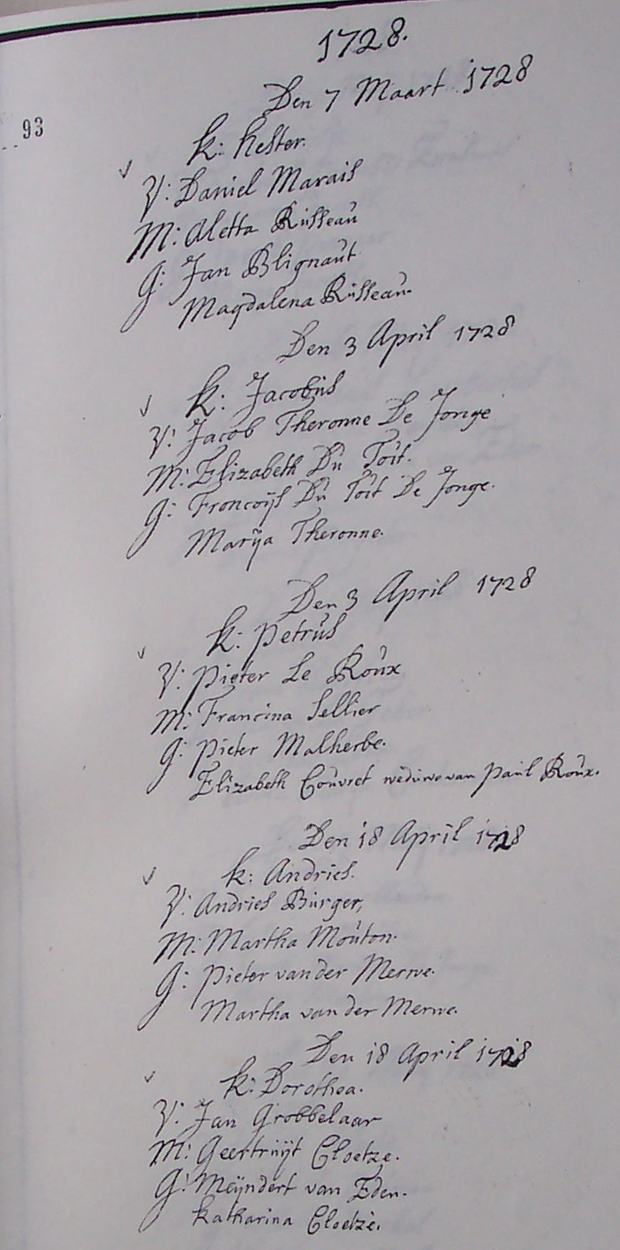 1728.
Den 7 Maart 1728
93
K: Hester.
V: Daniel Marais
M: Aletta Russeau
G: Jan Blignaut
Magdalena Russeau.
Den 3 April 1728
K: Jacobus
V: Jacob Theronne De Jonge
M: Elizabeth Du Toit.
G: Francoijs Du Toit De Jonge.
Marija Theronne.
Den 3 April 1728
K: Petrus
V: Pieter Le Roux
M: Francina Sellier
G: Pieter Malherbe.
Elizabeth Couvret weduwe van Paul Roux.
Den 18 April 1728
K: Andries.
V: Andries Burger,
M: Martha Mouton.
G: Pieter van der Merwe.
Martha van der Merwe.
Den 18 April 1728
K: Dorothea.
V: Jan Grobbelaar
M: Geertruijt Cloetze.
G: Meijndert van Eden.
Katharina Cloetze.